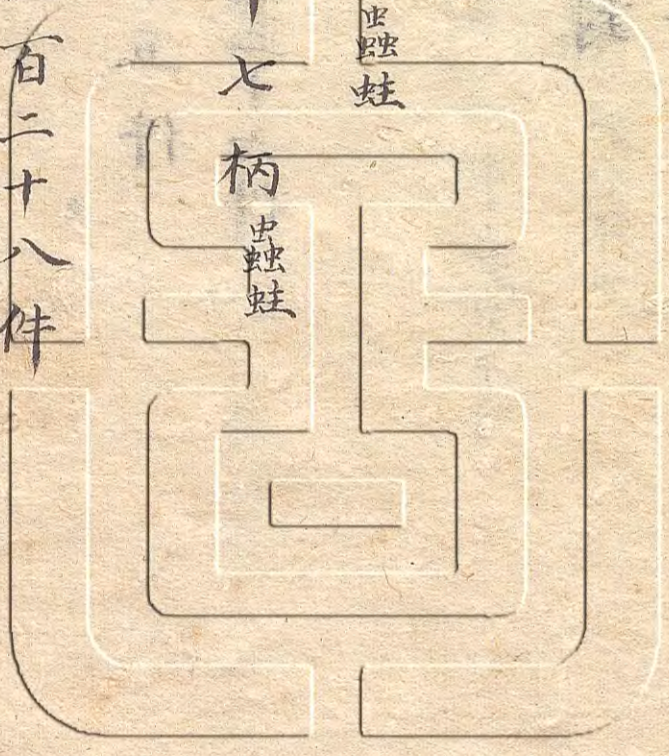 蟲蛙
七柄蟲蛙
百二十八件